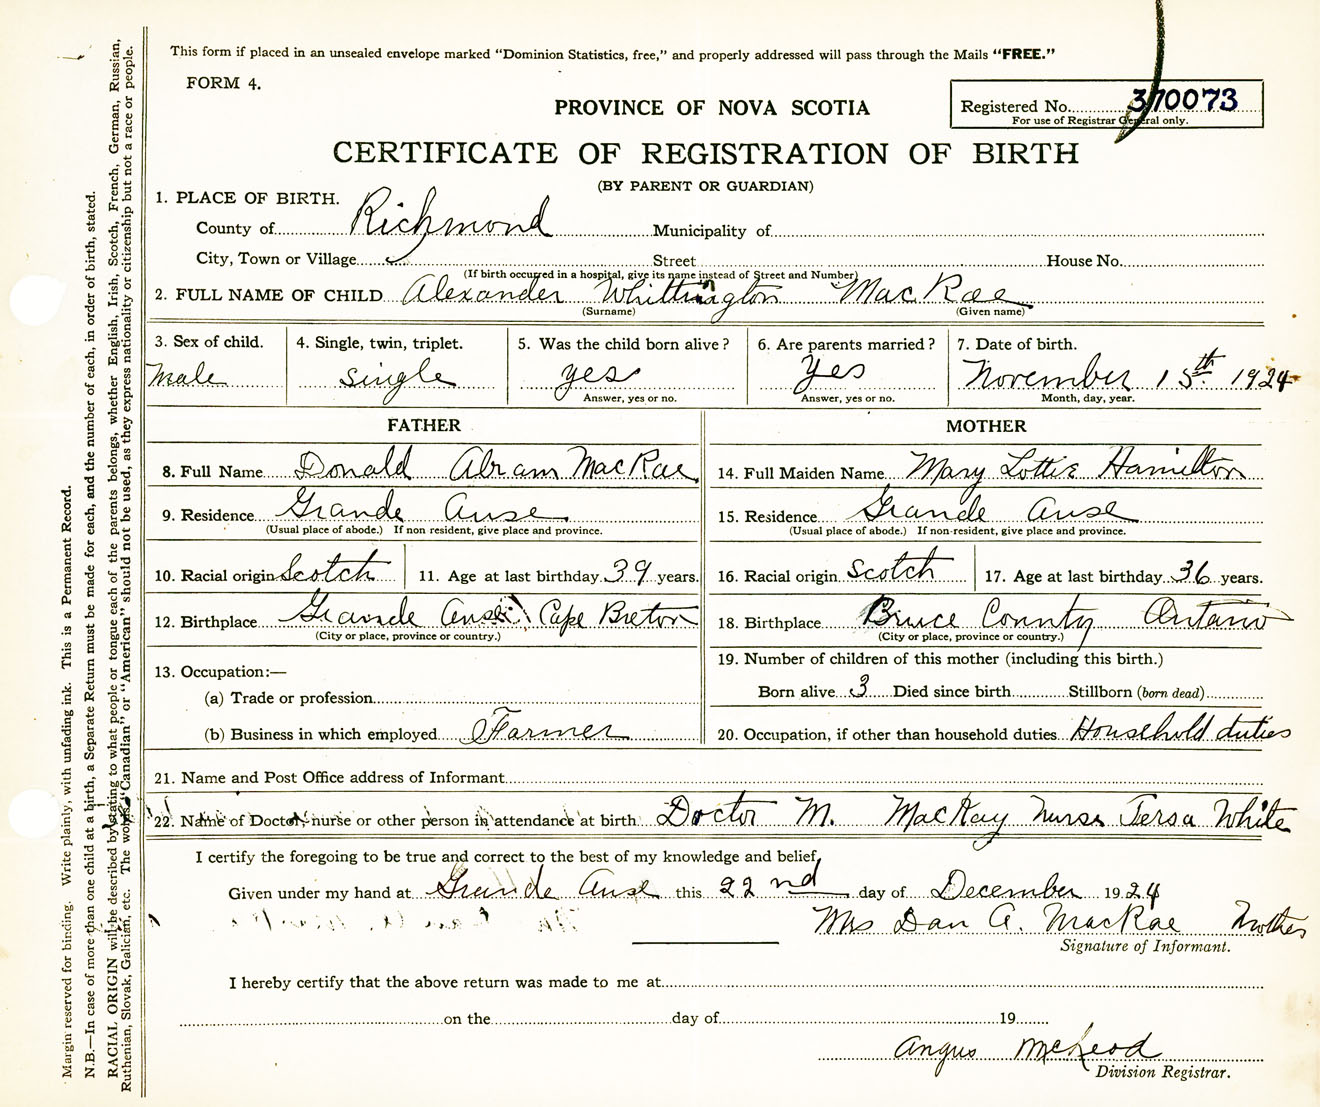 This form if placed in an unsealed envelope marked "Dominion Statistics, free," and properly addressed will pass through the Mails "FREE."
FORM 4.
Registered No. 370073
For use of Registrar General only.
PROVINCE OF NOVA SCOTIA
CERTIFICATE OF REGISTRATION OF BIRTH
(BY PARENT OR GUARDIAN)
1. PLACE OF BIRTH.
County of Richmond Municipality of
City, Town or Village Street House No.
(If birth occurred in a hospital, give its name instead of Street and Number)
2. FULL NAME OF CHILD Alexander Whittington MacRae
(Surname) (Given name)
3. Sex of child. 4. Single, twin, triplet. 5. Was the child born alive? 6. Are parents married? 7. Date of birth.
Male single yes Yes November 15th 1924
Answer, yes or no. Answer, yes or no. Month, day, year.
FATHER MOTHER
8. Full Name Donald Abram MacRae 14. Full Maiden Name Mary Lottie Hamilton
9. Residence Grande Anse 15. Residence Grande Anse
(Usual place of abode.) If non resident, give place and province. (Usual place of abode.) If non-resident, give place and province.
10. Racial origin Scotch 11. Age at last birthday 39 years. 16. Racial origin Scotch 17. Age at last birthday 36 years.
12. Birthplace Grande Anse Cape Breton 18. Birthplace Bruce County Ontario
(City or place, province or country.) (City or place, province or country.)
13. Occupation:— 19. Number of children of this mother (including this birth.)
(a) Trade or profession Born alive 3 Died since birth Stillborn (born dead)
(b) Business in which employed Farmer 20. Occupation, if other than household duties Household duties
21. Name and Post Office address of Informant
22. Name of Doctor, nurse or other person in attendance at birth Doctor M. MacKay Nurse Tersa White
I certify the foregoing to be true and correct to the best of my knowledge and belief,
Given under my hand at Grande Anse this 22nd day of December 1924
Mrs Dan A. MacRae Mother
Signature of Informant.
I hereby certify that the above return was made to me at
on the day of 19
Angus McLeod
Division Registrar.
Margin reserved for binding. Write plainly, with unfading ink. This is a Permanent Record.
N.B.—In case of more than one child at a birth, a Separate Return must be made for each, and the number of each, in order of birth, stated.
RACIAL ORIGIN will be described by stating to what people or tongue each of the parents belongs, whether English, Irish, Scotch, French, German, Russian,
Ruthenian, Slovak, Galician, etc. The words "Canadian" or "American" should not be used, as they express nationality or citizenship but not a race or people.